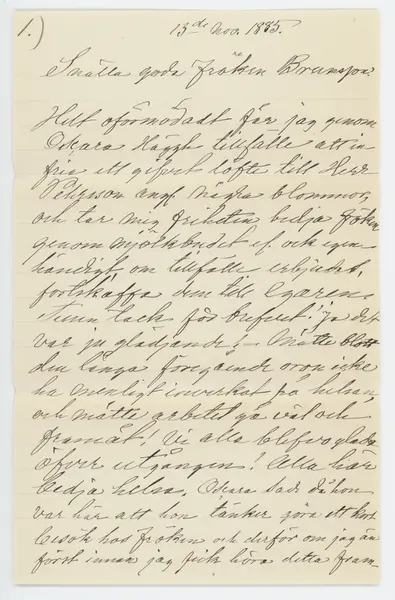 1.)
13de Nov 1885.
Snälla goda Fröken Brunsson!
Helt oförmodadt får jag genom
Oscara Höggh tillfälle att in
fria ett gifvet löfte till Herr
Petersson ang. några blommor,
och tar mig friheten bedja fröken
genom mjölkbudet el. ock egen-
händigt om tillfälle erbjudes,
fortskaffa dem till egaren.
Tusen tack för brefvet! Ja det
var ju glädjande! — Måtte blott
den långa föregående oron icke
ha menligt inverkat på helsan
och måtte arbetet gå väl och
framåt! Vi alla blefvo glada
öfver utgången! Alla här
bedja helsa. Oscara sade då hon
var här att hon tänker göra ett kort
besök hos Fröken och derför om jag än
först innan jag fick höra detta fram-